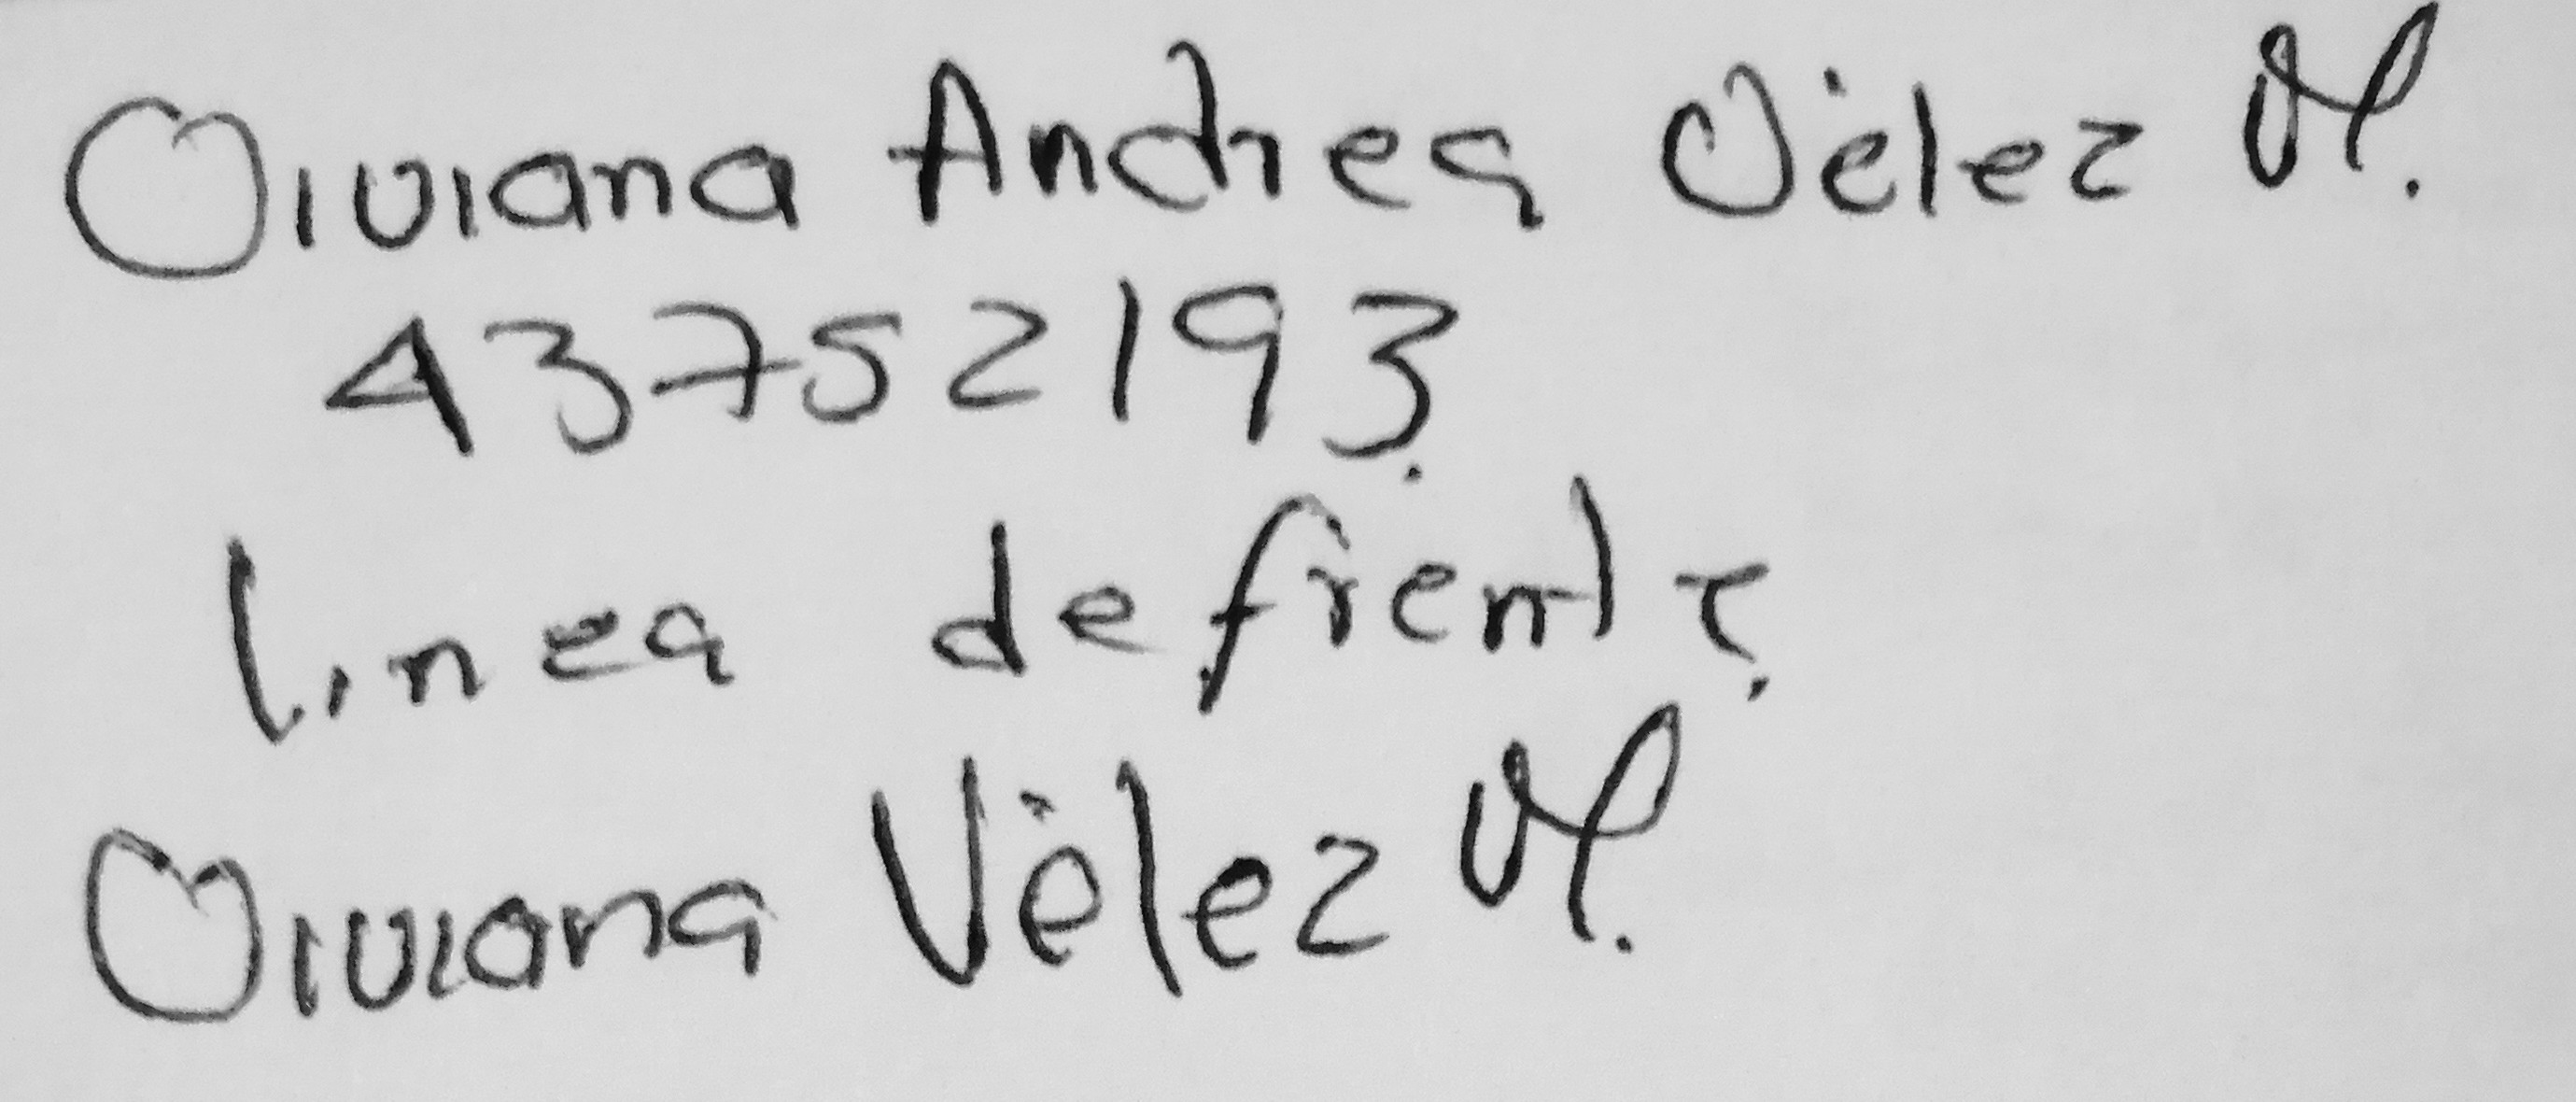 Viviana Andrea Vélez M.
43752193.
linea de frente.
Viviana Vélez M.